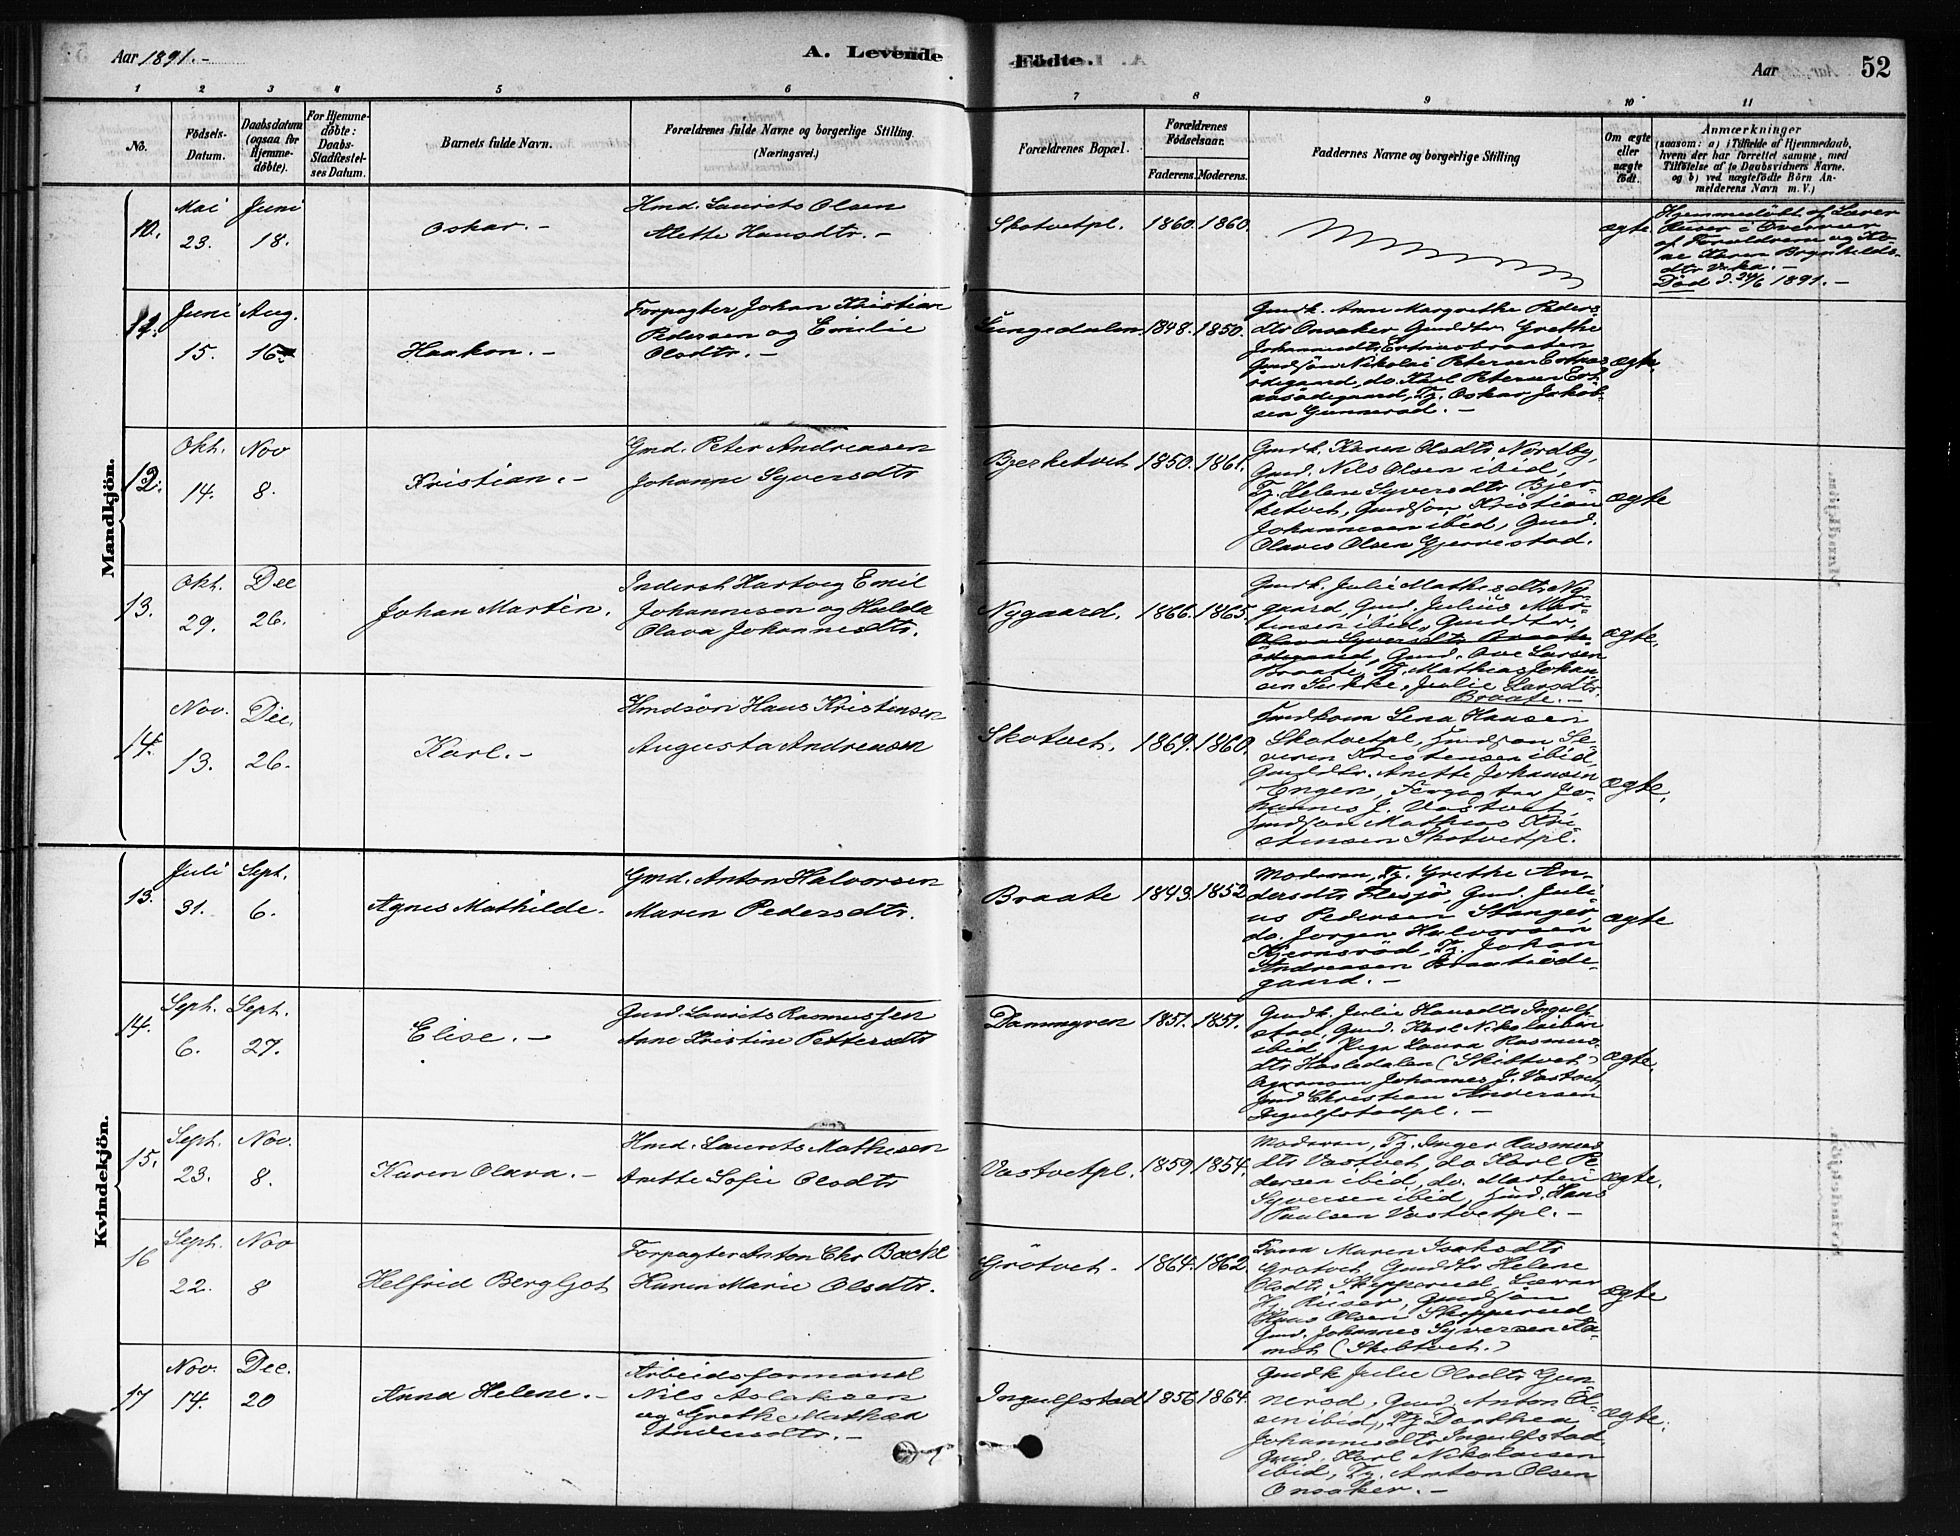 Aar 1891.-
A. Levende
Födte.
Aar
52
1 2 3 4 5 6 7 8 9 10 11
No.
Födsels-
Datum.
Daabsdatum
(ogsaa for
Hjemme-
döbte).
For Hjemme-
döbte:
Daabs-
Stadfæstel-
ses Datum.
Barnets fulde Navn.
Forældrenes fulde Navne og borgerlige Stilling.
(Næringsvei.)
Forældrenes Bopæl.
Forældrenes
Födselsaar.
Faderens. Moderens.
Faddernes Navne og borgerlige Stilling
Om ægte
eller
uægte
født.
Anmærkninger
(saasom: a) i Tilfælde af Hjemmedaab,
hvem der har forrettet samme, med
Tilföielse af to Daabsvidners Navne,
og b) ved uægtefödte Börn An-
melderens Navn m. V.)
Mandkjön.
10.
Mai
23.
Juni
18.
Oskar.-
Hmd. Laurits Olsen
Alette Hansdtr.-
Skotvetpl.
1860. 1860.
ægte
Hjemmedöbt af Lærer
Riiser i Overvær
af Forældrene og Ko-
ne Karen
Død d. 24/6 1891.-
11.
Juni
15.
Aug.
16.
Haakon.-
Forpagter Johan Kristian
Pedersen og Emilie
Olsdtr.-
Lungedalen
1848. 1850.
Gmdk. Anne Margrethe Peders
dtr Onsaker, Gmddtr Grethe
Johannesdtr
Gmdsön Nikolai Petersen
ödegaard, do. Karl Petersen
aasödegaard, Tj. Oskar Jakob-
sen Gunneröd.-
ægte
12.
Okt.
14.
Nov
8.
Kristian.-
Gmd. Peter Andreasen
Johanne Syversdtr
Bjerketvet
1850. 1861.
Gmdk. Karen Olsdtr Nordby,
Gmd. Nils Olsen ibid,
Tj. Helene Syversdtr Bjer-
ketvet, Gmdsön Kristian
Johannesen ibid, Gmd.
Olaves Olsen Gjerrestad.
ægte
13.
Okt.
29.
Dec
26.
Johan Martin.
Inderst Hartvig Emil
Johannesen og Hulda
Olava Johannesdtr.
Nygaard.
1866. 1865.
Gmdk. Julie Mathisdtr Ny-
gaard, Gmd. Julius Mar-
tinsen ibid, Gmddtr.
Olava Syversdtr Braate
ödegaard, Gmd. Ove Larsen
Braate, Tj. Mathias Johan-
sen Sikke, Julie Larsdtr.
Braate.-
ægte.
14.
Nov.
13.
Dec.
26.
Karl.-
Hmdsön Hans Kristensen
Augusta Andreasen
Skotvet.
1869. 1860.
Hmdkone Lena Hansen
Skotvetpl, Hmdsön Se-
veren Kristensen ibid,
Gmddtr. Anette Johansen
Engen, Forpagter Jo-
hannes J. Vastvet,
Hmdsön Mathias Kri-
stensen Skotvetpl.
ægte.
Kvindekjön.
13.
Juli
31.
Sept.
6.
Agnes Mathilde.
Gmd. Anton Halvorsen
Maren Pedersdtr.
Braate
1843. 1852
Moderen, Tj. Grethe An-
dersdtr Flesjö, Gmd. Juli-
us Pedersen Stanger,
do. Jorgen Halvorsen
Kjernsröd, Tj. Johan
Andreasen Braateöde-
gaard.-
ægte
14.
Seph.
6.
Sept.
27.
Elise.-
Gmd. Laurits Rasmussen
Ane Kristine Pettersdtr
Dammyren
1851. 1851.
Gmdk. Julie Hansdtr Ingulf-
stad, Gmd. Karl Nikolaisen
ibid, Pige Laura Rasmus-
dtr Hasledalen (Skibtvet)
Agronom Johannes J. Vastvet,
Hmd Christian Andersen
Ingulfstadpl.-
ægte.
15.
Sept.
23.
Nov.
8.
Karen Olava.-
Hmd. Laurits Mathisen
Anette Sofie Olsdtr
Vastvetpl.
1859 1854.
Moderen, Tj. Inger Rasmus
dtr Vastvet, do Karl Pe-
dersen ibid, do. Marten
Syversen ibid, Hmd. Hans
Paulsen Vastvetpl.-
ægte.
16
Seph.
22.
Nov
8
Helfrid Bergljot
Forpagter Anton Chr Backe
Karen Marie Olsdtr.
Grötvet.
1864. 1862
Kone Maren Isaksdtr
Grötvet, Gmddtr Helene
Olsdtr Skipperud, Lærer
Hj. Riiser, Gmdsön
Hans Olsen Skipperud
Gmd. Johannes Syversen Aa-
mot (Skibtvet.)
ægte
17
Nov.
14.
Dec.
20
Anna Helene.-
Arbeidsformand
Nils Aslaksen
og Grethe Mathea
Andersdtr.-
Ingulfstad
1856 1864.
Gmdk Julie Olsdtr Gun-
neröd, Gmd. Anton Ol-
sen ibid, Tj Dorthea
Johannesdtr Ingulfstad,
Gmd. Karl Nikolaisen
ibid, Tj. Anton Olsen
Onsaker.-
ægte.